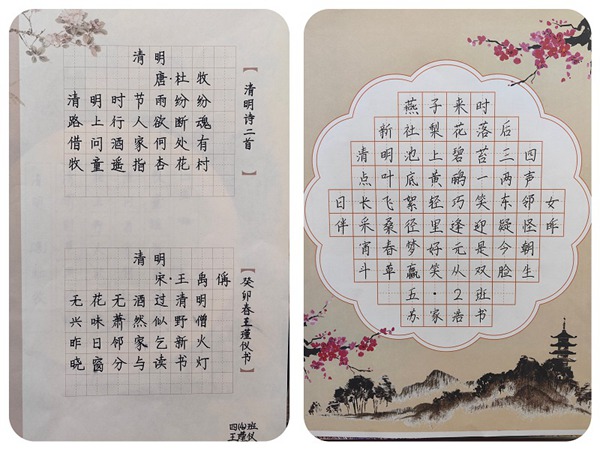 清明
唐·杜牧
清明时节雨纷纷
路上行人欲断魂
借问酒家何处有
牧童遥指杏花村
【清明诗二首】
清明
宋·王禹偁
无花无酒过清明
兴味萧然似野僧
昨日邻家乞新火
晓窗分与读书灯
【癸卯春王瑾仪书】
王瑾仪
燕子来时
新社梨花落后
清明池上碧苔三四
点叶底黄鹂一两声
日长飞絮轻巧笑东邻女
伴采桑径里逢迎疑怪昨
宵春梦好元是今朝
斗草赢笑从双脸生
五·2班
苏家浩书